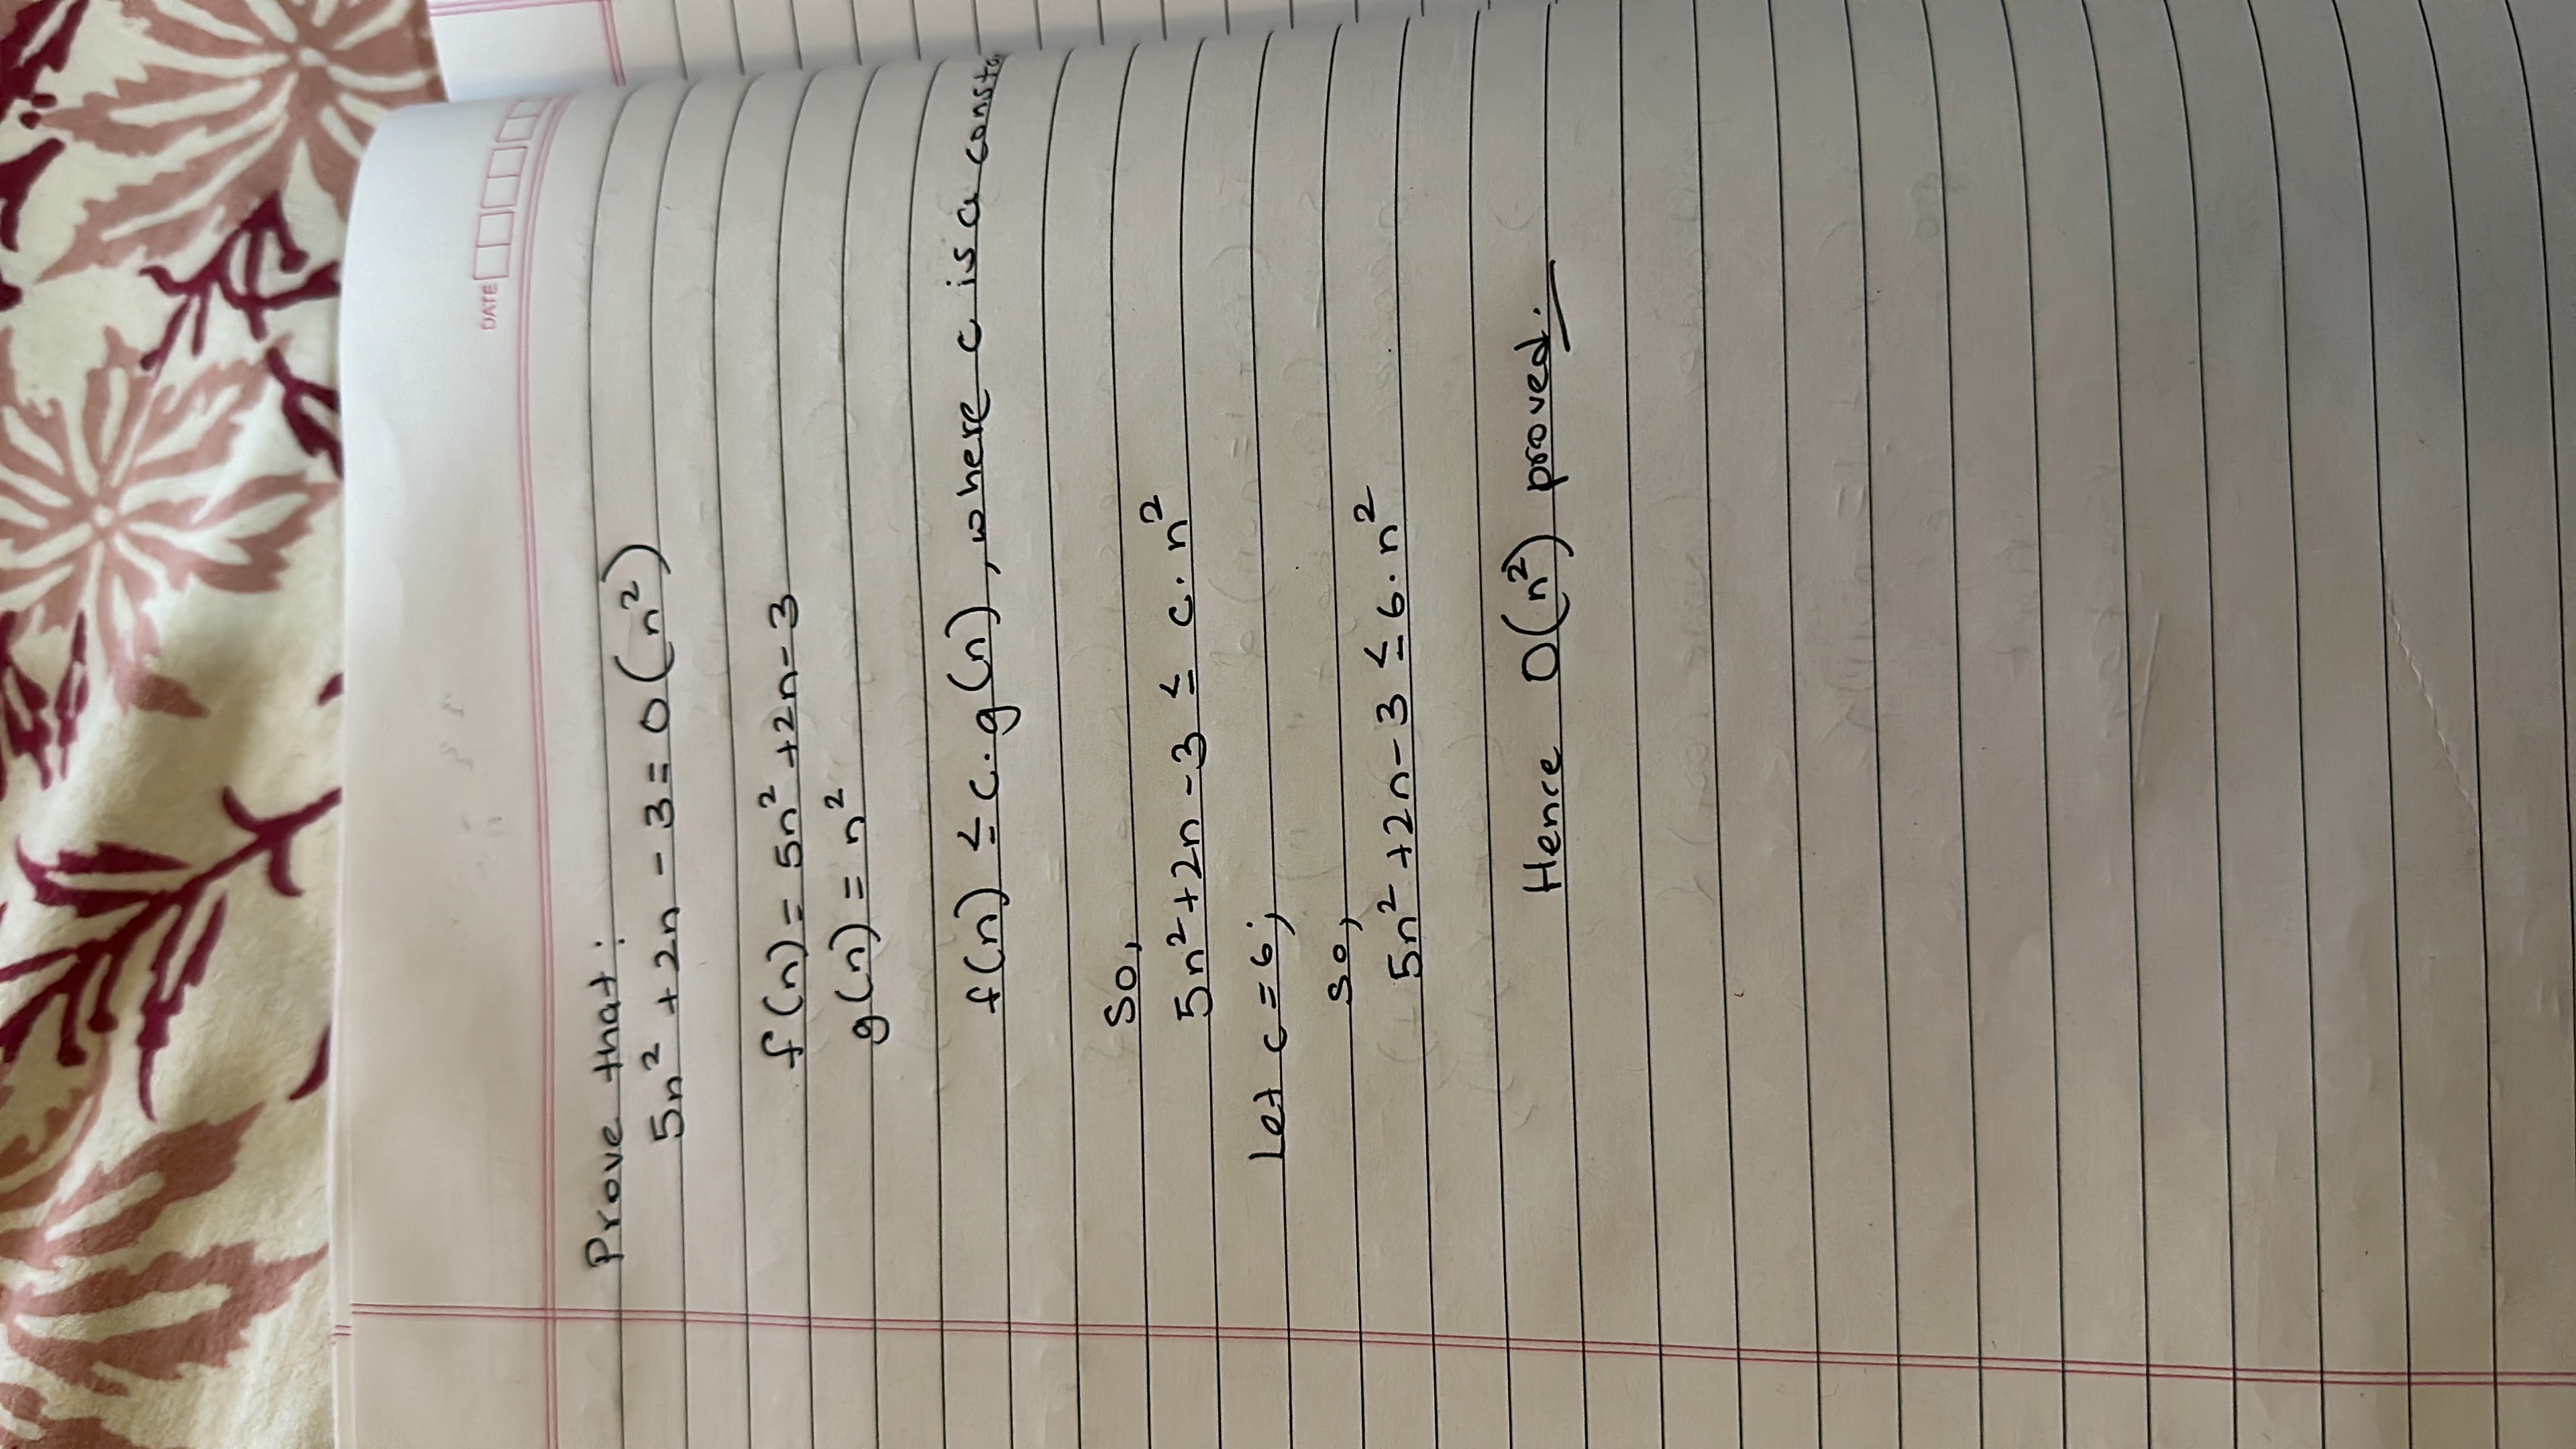 DATE
Prove that:
5n² + 2n - 3 = O(n²)
f(n) = 5n² + 2n - 3
g(n) = n²
f(n) ≤ c.g(n), where c is a consta
So,
5n² + 2n - 3 ≤ c. n²
Let c = 6;
so,
5n² + 2n - 3 ≤ 6. n²
Hence O(n²) proved.